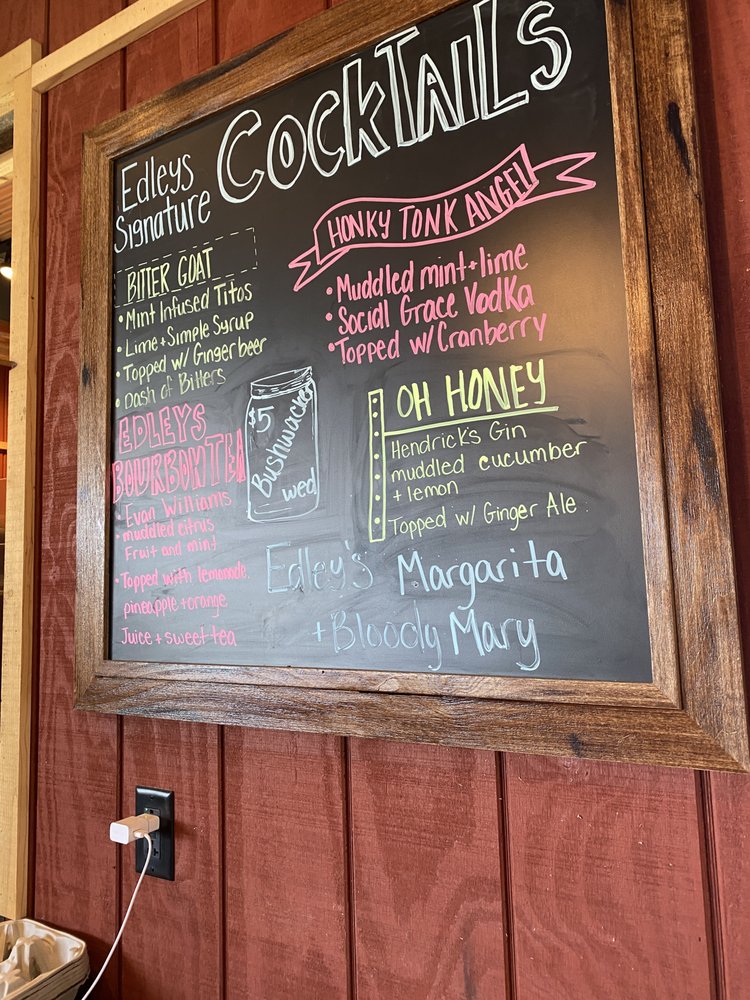 Edleys
Signature
Cocktails
BITTER GOAT
• Mint Infused Titos
• Lime + Simple Syrup
• Topped w/ Ginger beer
• Dash of Bitters
HONKY TONK ANGEL
• Muddled mint + lime
• Social Grace Vodka
• Topped w/ Cranberry
EDLEYS
BOURBON TEA
Evan Williams
• muddled citrus
Fruit and mint
• Topped with lemonade
pineapple + orange
Juice + sweet tea
$5
Bushwackers
wed
OH HONEY
Hendrick's Gin
muddled cucumber
+ lemon
Topped w/ Ginger Ale
Edley's Margarita
+ Bloody Mary